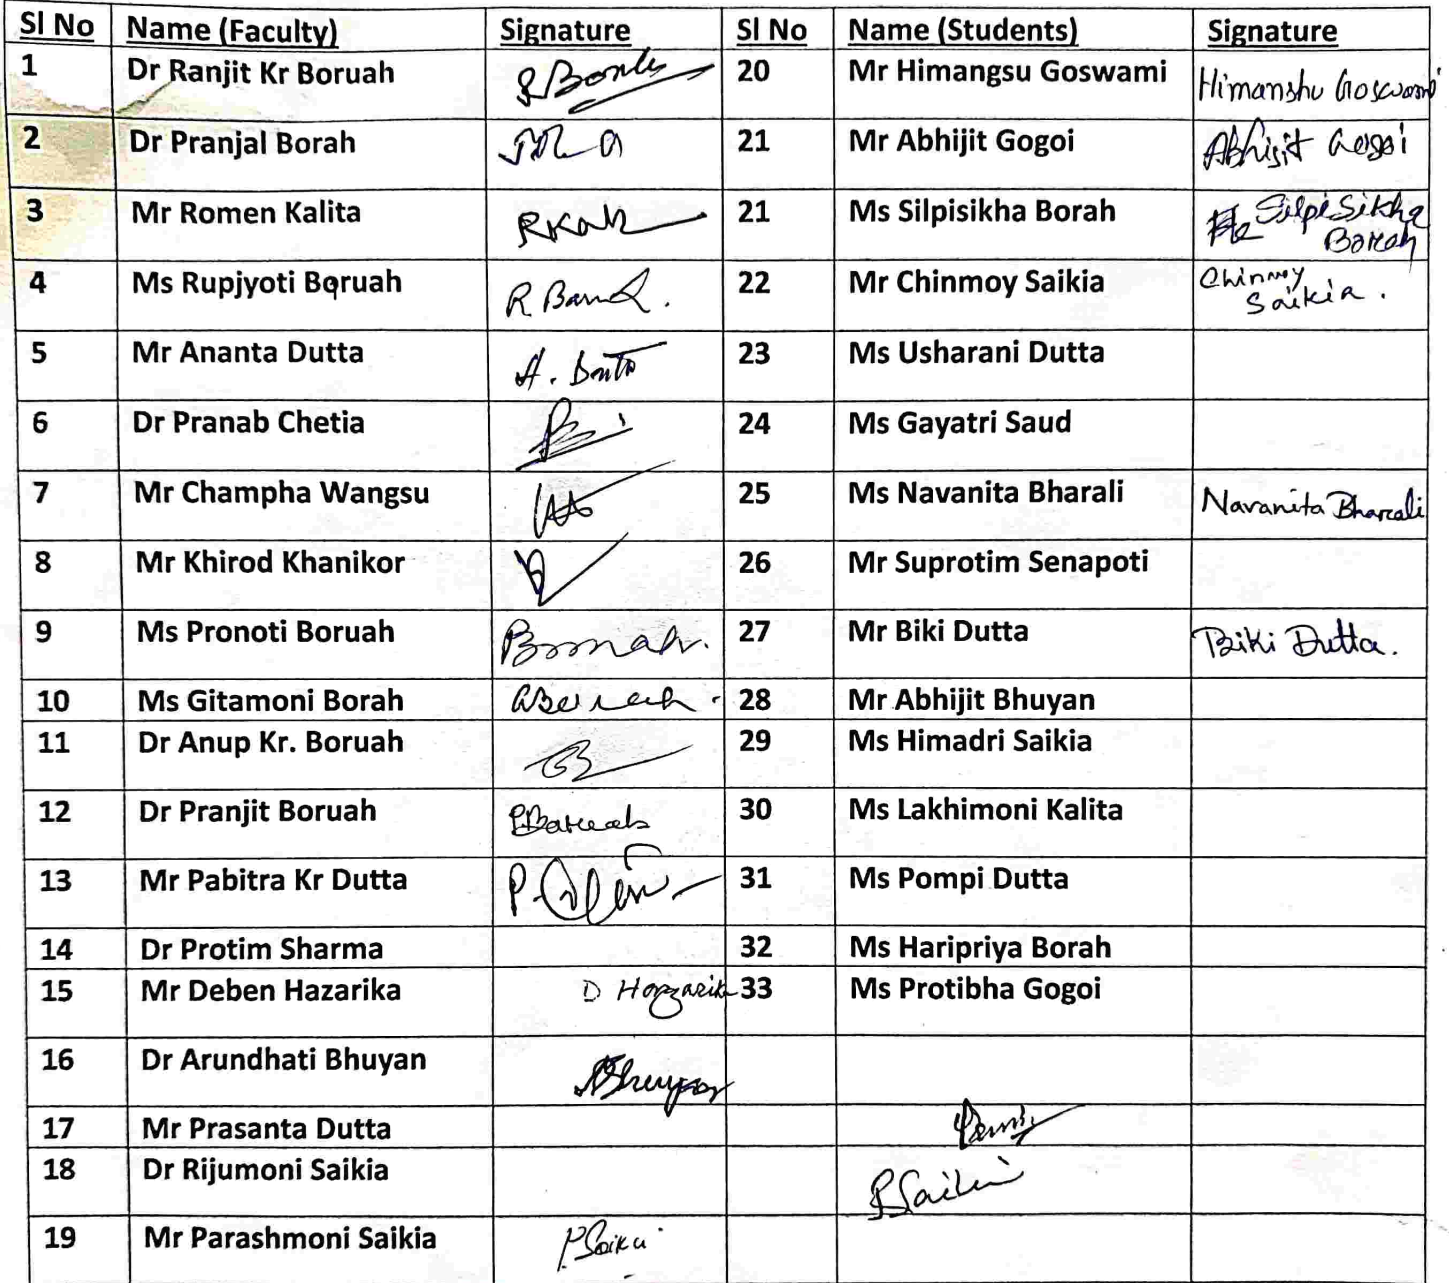 Sl No Name (Faculty) Signature Sl No Name (Students) Signature
1 Dr Ranjit Kr Boruah 20 Mr Himangsu Goswami Himanshu Goswami
2 Dr Pranjal Borah 21 Mr Abhijit Gogoi Abhijit Gogoi
3 Mr Romen Kalita 21 Ms Silpisikha Borah Silpi Sikha Borah
4 Ms Rupjyoti Boruah 22 Mr Chinmoy Saikia Chinmoy Saikia.
5 Mr Ananta Dutta 23 Ms Usharani Dutta
6 Dr Pranab Chetia 24 Ms Gayatri Saud
7 Mr Champha Wangsu 25 Ms Navanita Bharali Navanita Bharali
8 Mr Khirod Khanikor 26 Mr Suprotim Senapoti
9 Ms Pronoti Boruah 27 Mr Biki Dutta Biki Dutta.
10 Ms Gitamoni Borah 28 Mr Abhijit Bhuyan
11 Dr Anup Kr. Boruah 29 Ms Himadri Saikia
12 Dr Pranjit Boruah 30 Ms Lakhimoni Kalita
13 Mr Pabitra Kr Dutta 31 Ms Pompi Dutta
14 Dr Protim Sharma 32 Ms Haripriya Borah
15 Mr Deben Hazarika D Hazarika 33 Ms Protibha Gogoi
16 Dr Arundhati Bhuyan ABhuyan
17 Mr Prasanta Dutta
18 Dr Rijumoni Saikia RSaikia
19 Mr Parashmoni Saikia PSaikia